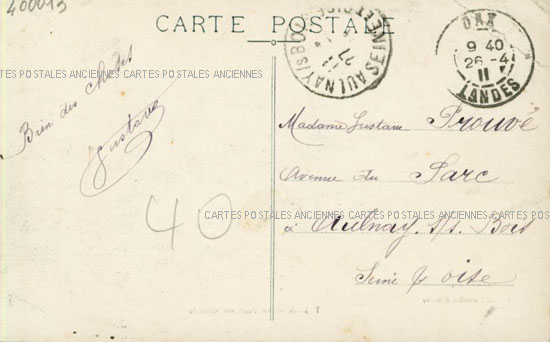 400013
CARTE POSTALE
SEINE ET OISE
AULNAY-S-BOIS
27
DAX
9 40
26 - 4
11
LANDES
CARTES POSTALES ANCIENNES CARTES POSTALES ANCIENNES CARTES POSTALES ANCIENNES
Bien des choses
Gustave
40
Madame Gustave Prouvé
Avenue du Parc
CARTES POSTALES ANCIENNES CARTES POSTALES ANCIENNES CARTES POSTALES
à Aulnay s/s Bois
Seine & Oise